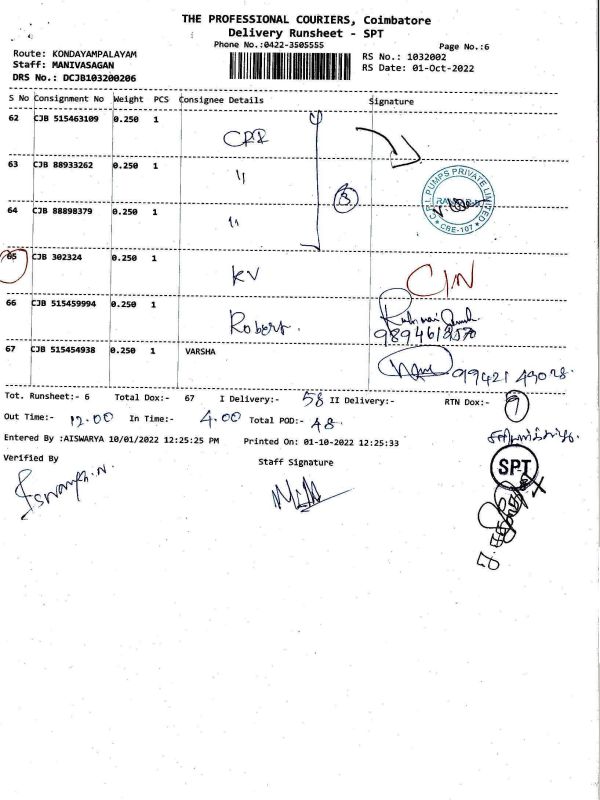 THE PROFESSIONAL COURIERS, Coimbatore
Delivery Runsheet - SPT
Phone No.:0422-3505555
Page No.:6
Route: KONDAYAMPALAYAM
Staff: MANIVASAGAN
DRS No.: DCJB103200206
RS No.: 1032002
RS Date: 01-Oct-2022
S No Consignment No Weight PCS Consignee Details Signature
62 CJB 515463109 0.250 1
63 CJB 88933262 0.250 1 "
64 CJB 88898379 0.250 1 "
3
PUMPS PRIVATE LIMITED
CBE-107
65 CJB 302324 0.250 1 KV
66 CJB 515459994 0.250 1 Robert.
67 CJB 515454938 0.250 1 VARSHA 99421 49028.
Tot. Runsheet:- 6 Total Dox:- 67 I Delivery:- 58 II Delivery:- RTN Dox:- 9
Out Time:- 12.00 In Time:- 4.00 Total POD:- 48.
Entered By :AISWARYA 10/01/2022 12:25:25 PM Printed On: 01-10-2022 12:25:33
Verified By Staff Signature
SPT